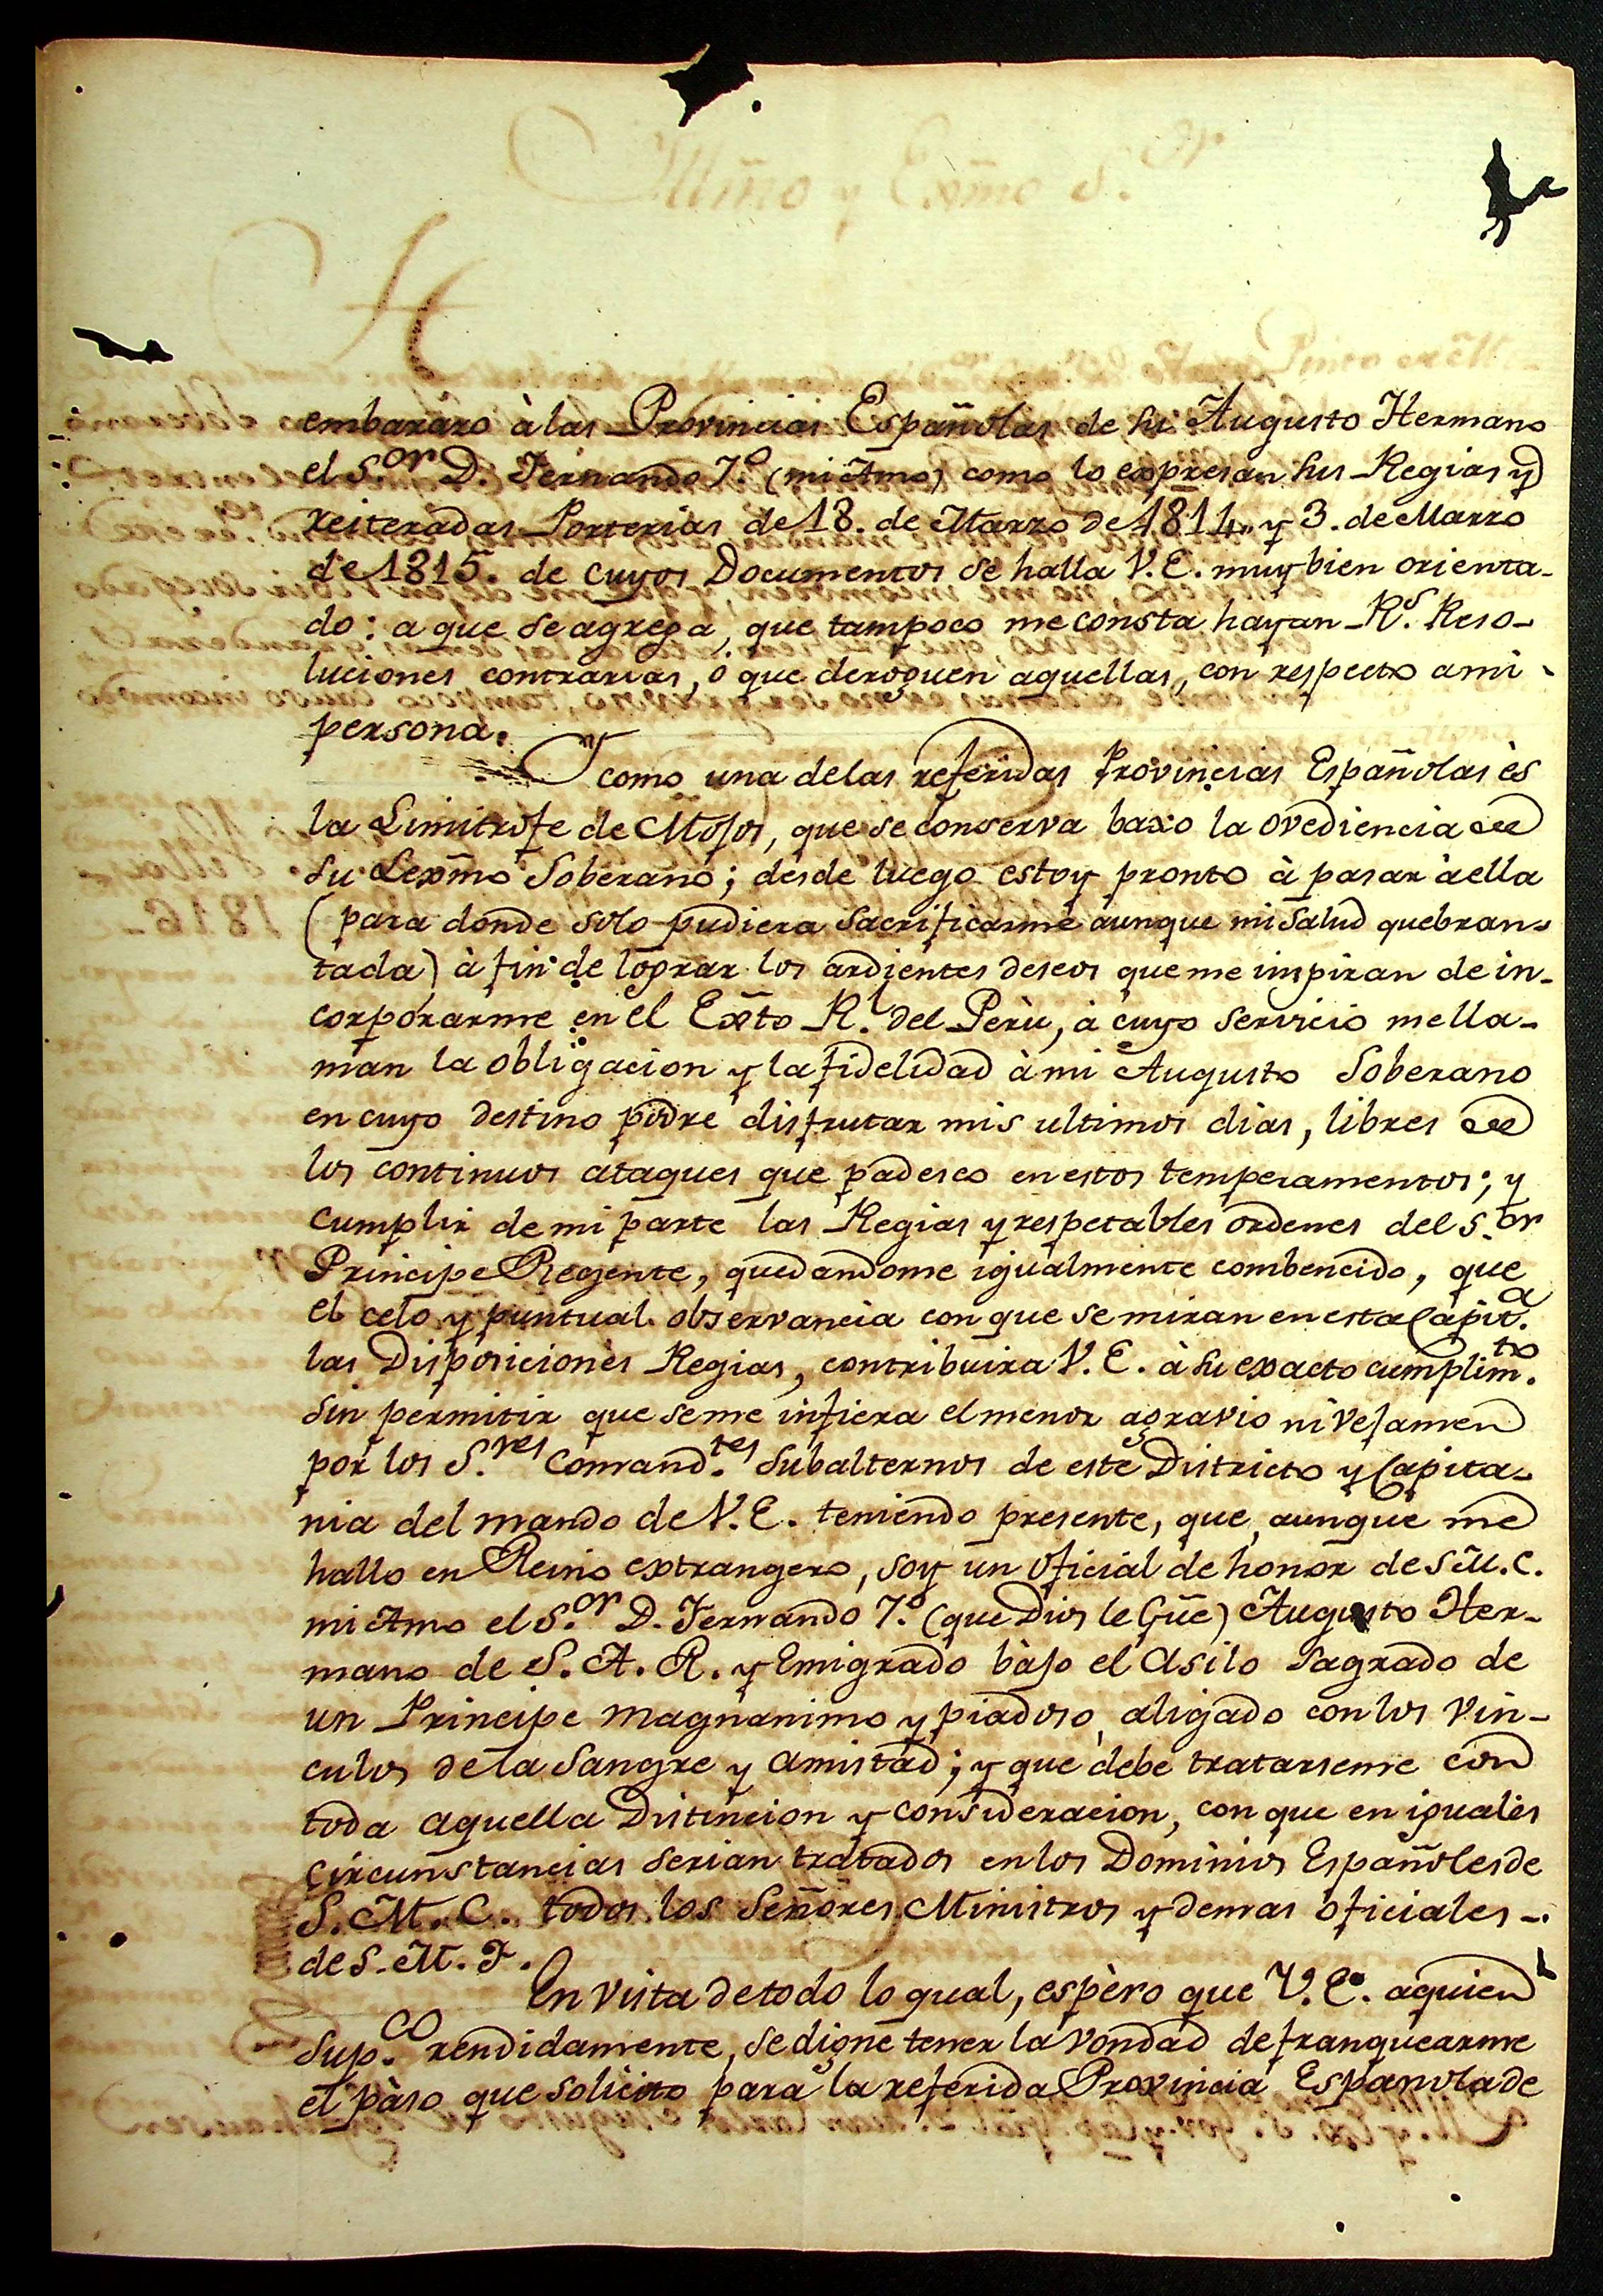 Illm̃o y Exm̃o S.or
H
embarazo à las Provincias Españolas de su Augusto Hermano
el S.or D. Fernando 7.o (mi Amo) como lo expresan sus Regias y
reiteradas Porterias de 18. de Marzo de 1811,, y 3. de Marzo
de 1815. de cuyos Documentos se halla V.E. muy bien orienta-
do: a que se agrega, que tampoco me consta hayan R.s Reso-
luciones contrarias, o que deroguen aquellas, con respecto a mi
persona.
Y como una de las referidas Provincias Españolas ès
la Limitrofe de Mojos, que se conserva baxo la ovediencia de
Su Lexm̃o Soberano; desde luego estoy pronto à pasar à ella
(para donde solo pudiera Sacrificarme aunque mi Salud quebran-
tada) à fin de lograr los ardientes deseos que me inspiran de in-
corporarme en el Exto R.l del Perù, à cuyo servicio me lla-
man la obligacion y la fidelidad à mi Augusto Soberano
en cuyo destino podre disfrutar mis ultimos dias, libres de
los continuos ataques que padesco en estos temperamentos; y
cumplir de mi parte las Regias y respetables ordenes del S.or
Principe Regente, quedandome igualmente combencido, que
el celo y puntual observancia con que se miran en esta Capit.a
las Disposiciones Regias, contribuira V.E. à su exacto cumplim.to
Sin permitir que se me infiera el menor agravio ni vejamen
por los S.res Comand.tes Subalternos de este Districto y Capita-
nia del mando de V.E. teniendo presente, que, aunque me
hallo en Reino extrangero, soy un oficial de honor de S.M.C.
mi Amo el S.or D. Fernando 7.o (que Dios le Gũe) Augusto Her-
mano de S.A.R. y Emigrado bàjo el Asilo Sagrado de
un Principe magnanimo y piadoso, aligado con los vin-
culos de la Sangre y Amistad; y que debe tratarseme con
toda aquella Distincion y consideracion, con que en iguales
circunstancias serian tratados en los Dominios Españoles de
S.M.C. todos los Señores Ministros y demas oficiales -.
de S.M.F.
En vista de todo lo qual, espèro que V.E. a quien
Sup.co rendidamente, se digne tener la vondad de franquearme
el pàso que solicito para la referida Provincia Española de